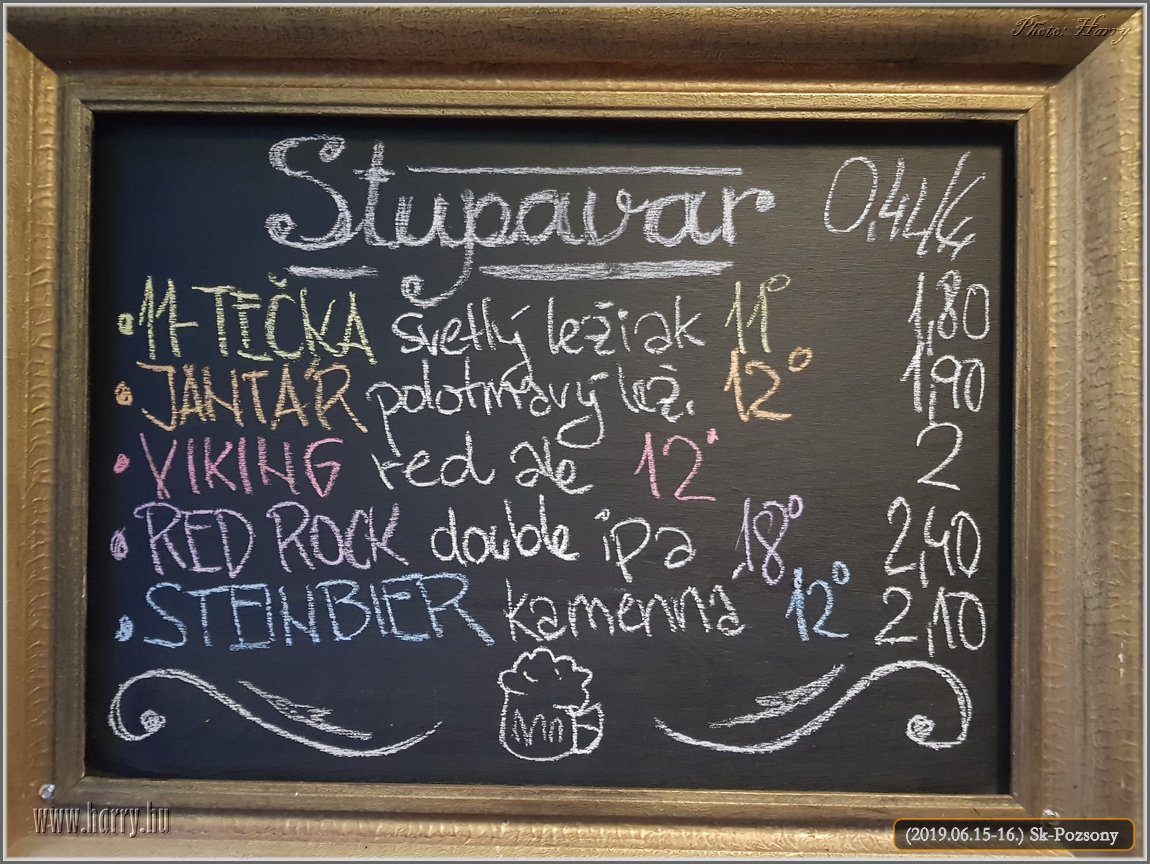 Photo: Harry
Stupavar 0,4L/€
11-TEČKA svetlý ležiak 11° 1,80
JANTÁR polotmavý lež. 12° 1,90
VIKING red ale 12° 2
RED ROCK double ipa 18° 2,40
STEINBIER kamenná 12° 2,10
www.harry.hu
(2019.06.15-16.) Sk-Pozsony